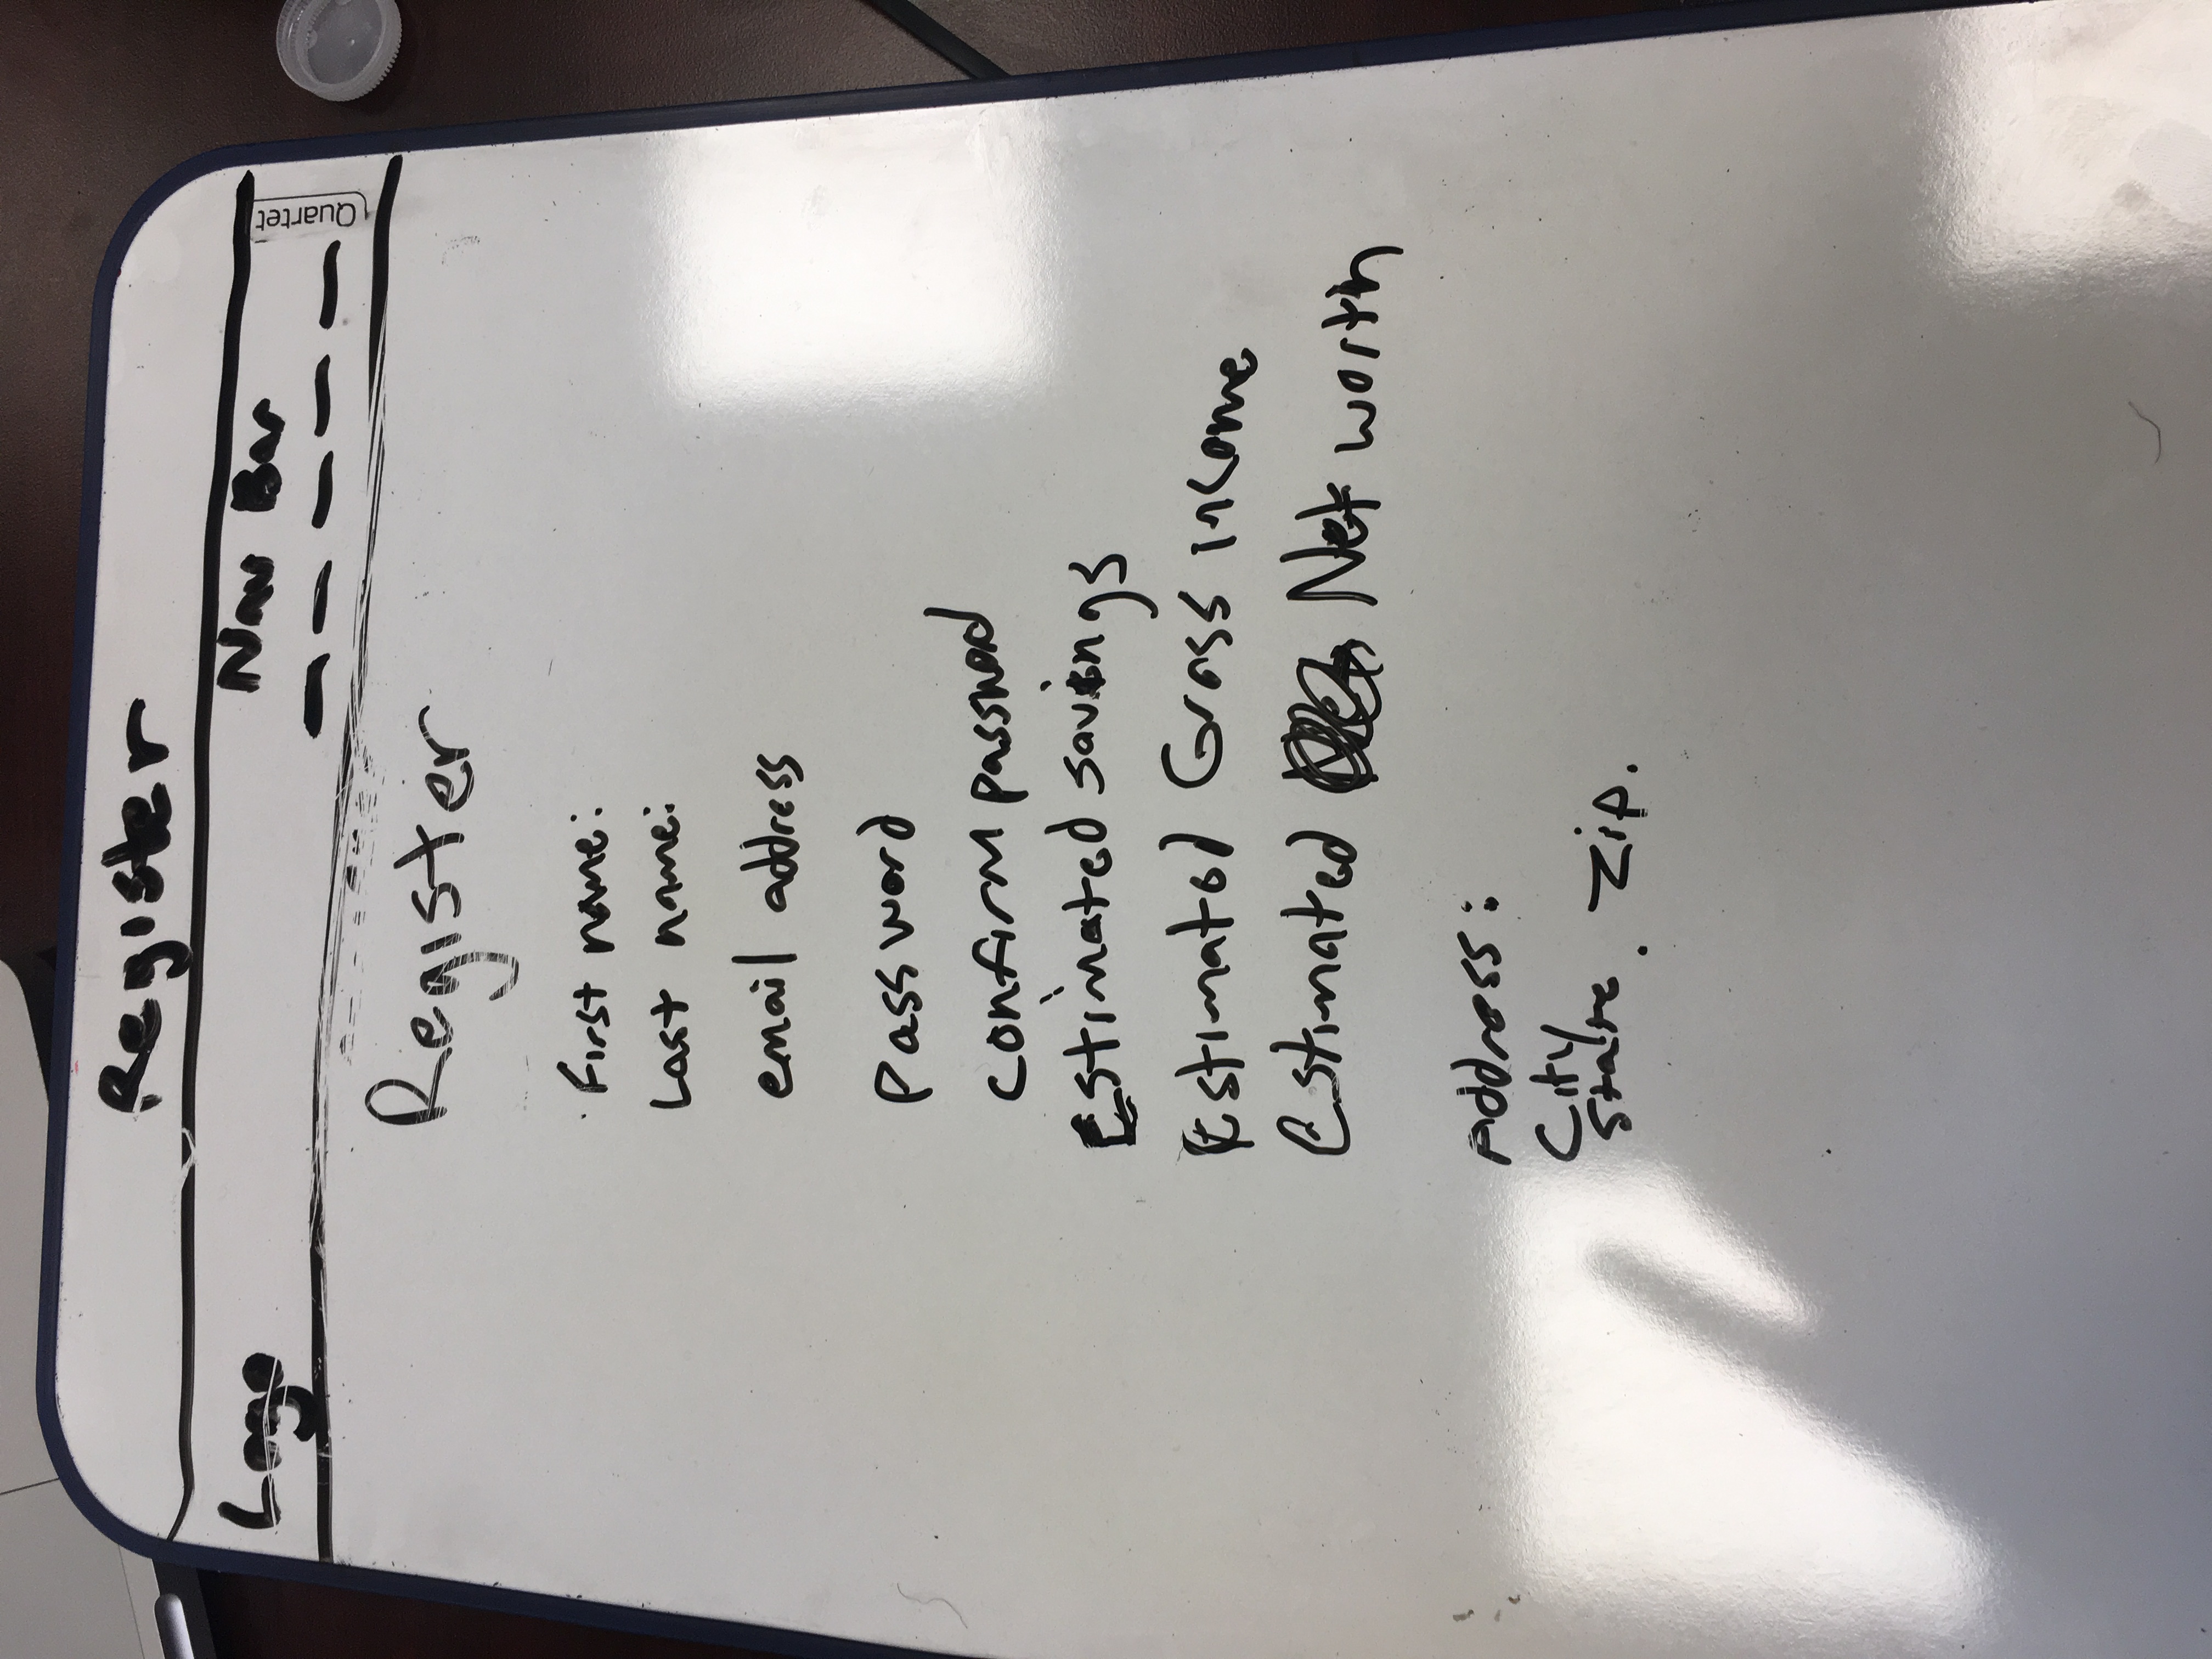 Register
Logo
Nav Bar
Quartet
Register
First name:
Last name:
email address
Password
Confirm password
Estimated savings
Estimated Gross income
Estimated Net worth
Address:
City
State. Zip.